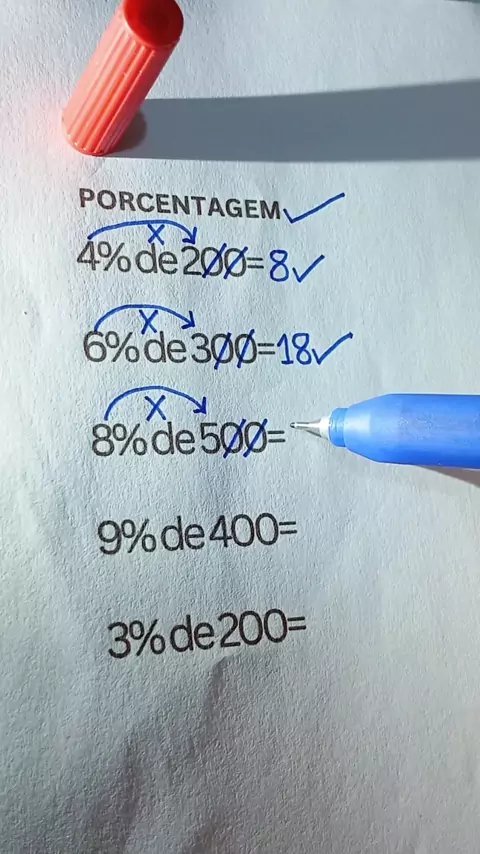 PORCENTAGEM
4% de 200=8
6% de 300=18
8% de 500=
9% de 400=
3% de 200=